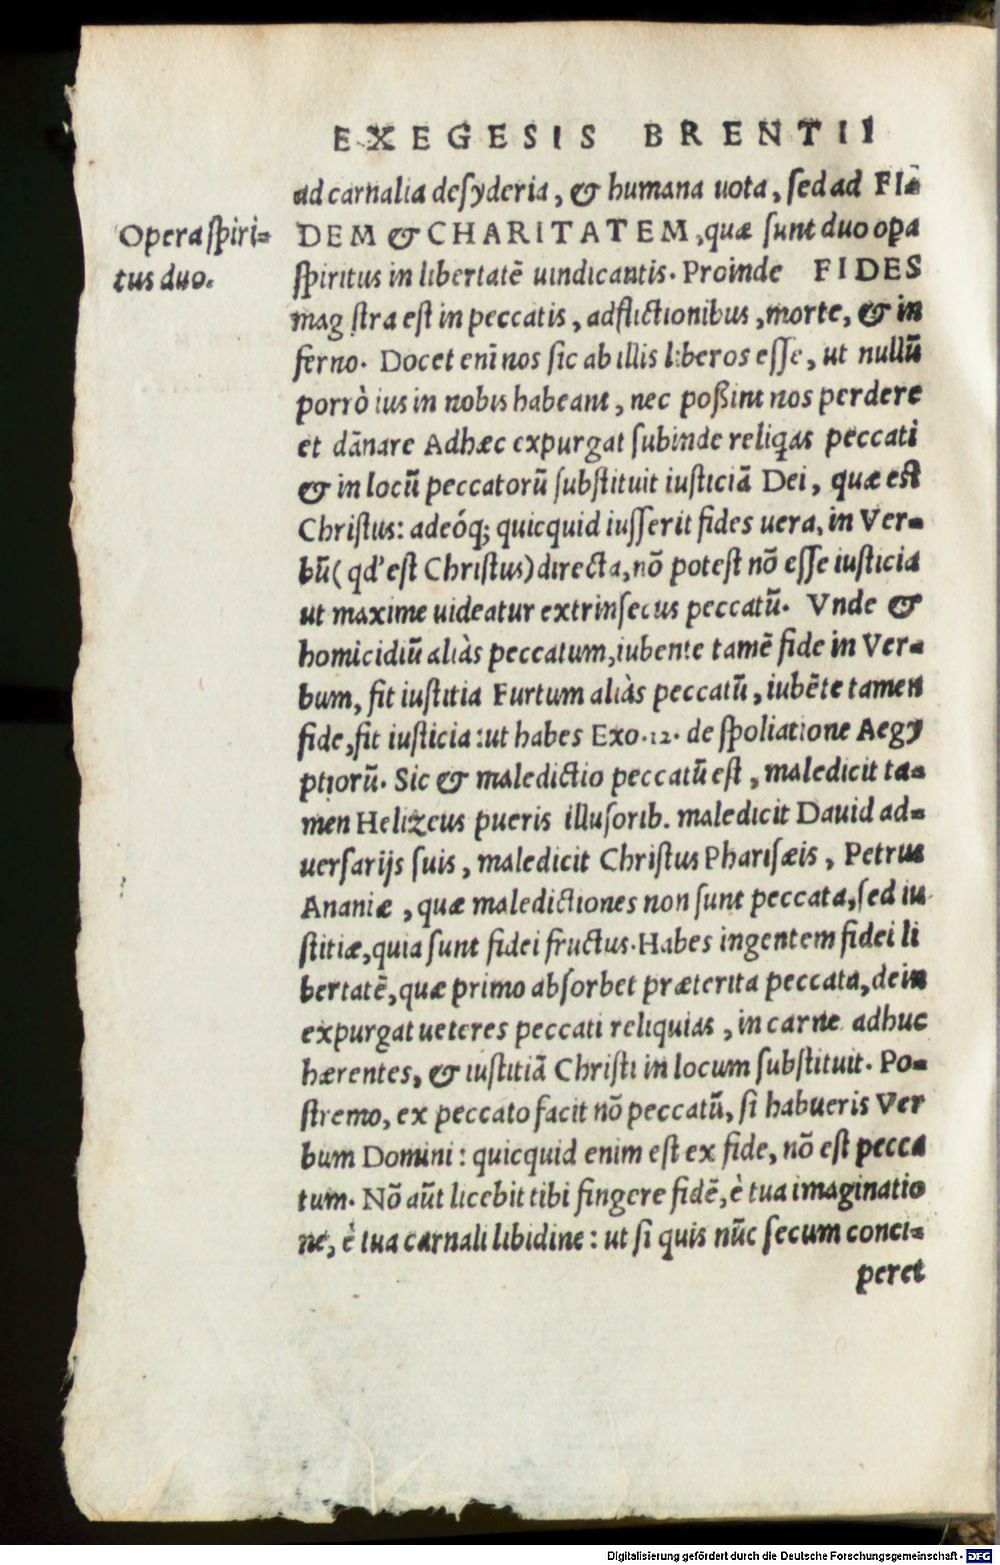 EXEGESIS BRENTII
ad carnalia desyderia, & humana uota, sed ad FI=
Opera spiri=
tus duo.
DEM & CHARITATEM, quæ sunt duo opa
spiritus in libertatē uindicantis. Proinde FIDES
mag stra est in peccatis, adflictionibus, morte, & in
ferno. Docet enī nos sic ab illis liberos esse, ut nullū
porrò ius in nobis habeant, nec poßint nos perdere
et dānare Adhæc expurgat subinde reliqas peccati
& in locū peccatorū substituit iusticiā Dei, quæ est
Christus: adeóq; quicquid iusserit fides uera, in Ver=
bū (qd' est Christus) directa, nō potest nō esse iusticia
ut maxime uideatur extrinsecus peccatū. Vnde &
homicidiū aliàs peccatum, iubente tamē fide in Ver=
bum, fit iustitia Furtum aliàs peccatū, iubēte tamen
fide, fit iusticia: ut habes Exo. 12. de spoliatione Aegy
ptiorū. Sic & maledictio peccatū est, maledicit ta=
men Helizeus pueris illusorib. maledicit Dauid ad=
uersarijs suis, maledicit Christus Pharisæis, Petrus
Ananiæ, quæ maledictiones non sunt peccata, sed iu
stitiæ, quia sunt fidei fructus. Habes ingentem fidei li
bertatē, quæ primo absorbet præterita peccata, dein
expurgat ueteres peccati reliquias, in carne adhuc
hærentes, & iustitiā Christi in locum substituit. Po=
stremo, ex peccato facit nō peccatū, si habueris Ver
bum Domini: quicquid enim est ex fide, nō est pecca
tum. Nō aūt licebit tibi fingere fidē, è tua imaginatio
ne, è tua carnali libidine: ut si quis nūc secum conci=
peret
Digitalisierung gefördert durch die Deutsche Forschungsgemeinschaft - DFG